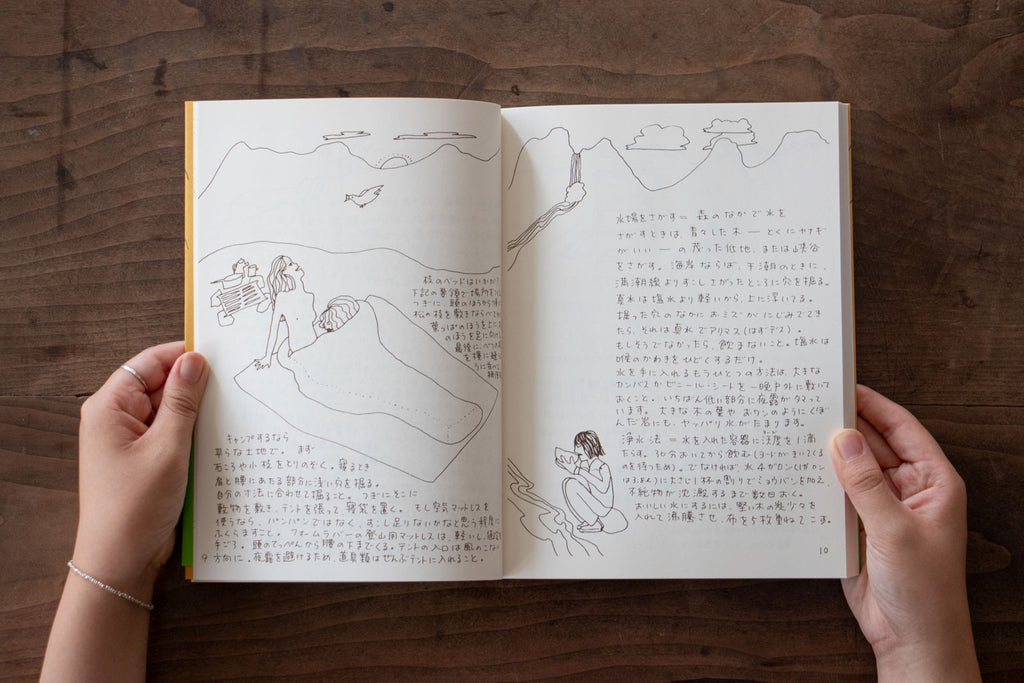 枝のベッドはいかが?
下記の要領で場所をつ
つぎに、頭のほうから
松の枝を敷きならべて
葉っぱのほうを上に
のほうを足に向け
最後に、
を横に
キャンプするなら
平らな土地で。まず
石ころや小枝をとりのぞく。寝るとき
肩と腰にあたる部分に浅い穴を掘る。
自分の寸法に合わせて掘ること。つぎにそこに
敷物を敷き、テントを張って寝袋を置く。もし空気マットレスを
使うなら、パンパンではなく、すこし足りないかなと思う程度に
ふくらますこと。フォームラバーの登山用マットレスは、軽いし、値段も
手ごろ。頭のてっぺんから腰の下までくる。テントの入口は風のこない
方向に。夜露を避けるため、道具類はぜんぶテントに入れること。
9
水場をさがす= 森のなかで水を
さがすときは、青々した木 — とくにヤナギ
がいい — の茂った低地、または峡谷
をさがす。海岸ならば、干潮のときに、
満潮線よりすこしさがったところに穴を掘る。
真水は塩水より軽いから、上に浮いてる。
掘った穴のなかにおミズがにじみでてき
たら、それは真水でアリマス(はずデス)。
もしそうでなかったら、飲まないこと。塩水は
喉のかわきをひどくするだけ。
水を手に入れるもうひとつの方法は、大きな
カンバスかビニール・シートを一晩戸外に敷いて
おくこと。いちばん低い部分に夜露がタマって
います。大きな木の葉や おワンのようにくぼ
んだ岩にも、ヤッパリ水がたまります。
浄水法 = 水を入れた容器に沃度を1滴
たらす。30分おいてから飲む(ヨードがきいてくる
のを待つため)。でなければ、水4ガロン(1ガロン
は3.8ℓ)に大さじ1杯の割りでミョウバンを加え、
不純物が沈澱するまで数日おく。
おいしい水にするには、堅い木の炭少々を
入れて沸騰させ、布を5枚重ねてこす。
10